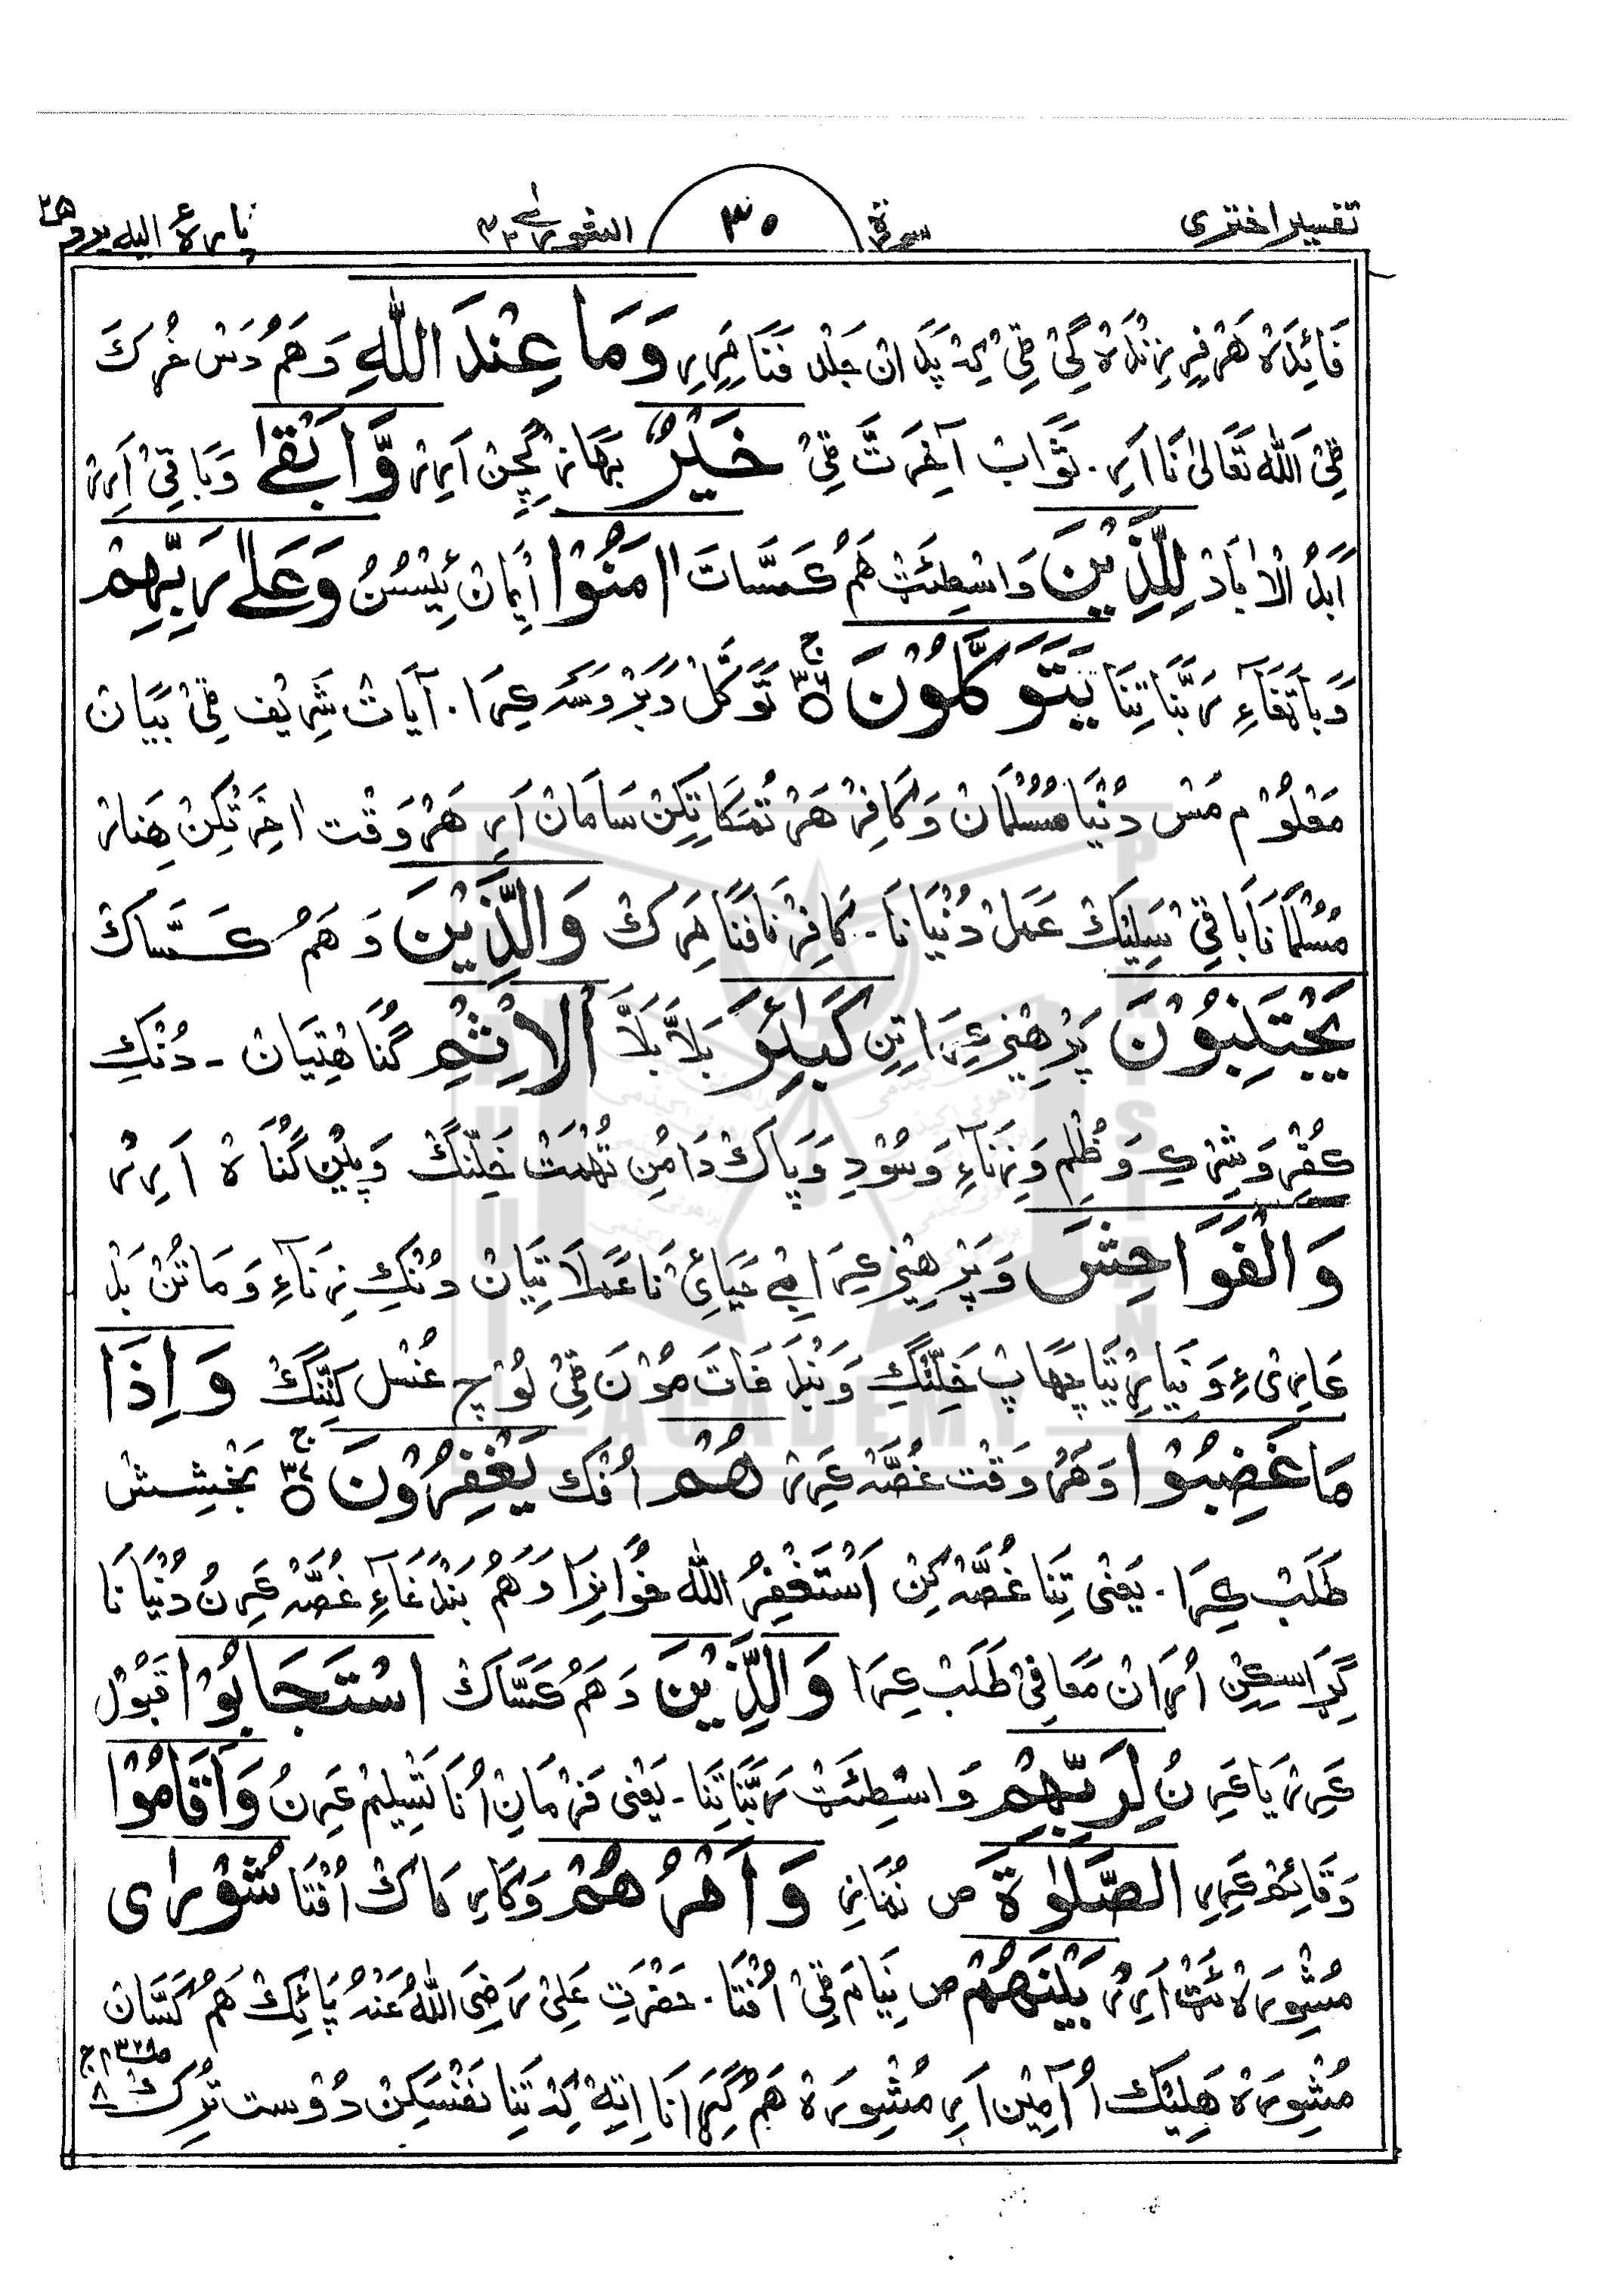 تفسیر اختری سورۃ ۳۰ الشورٰی ۴۲ پارۂ الیہ یرد ۲۵
فَائِدَہ ھَرْ فِرِ زِنْدَہ گِیْ ٹِیْ کِہ پَدْ اَنْ جَلد فَنَا مَرِیرِ وَمَا عِنْدَ اللّٰہِ وَھَمُ دَسْ خُرک
ٹِیْ اَللّٰہ تَعَالیٰ نَا اَرِ۔ ثَوَاب آخِرَتْ ٹِیْ خَیْرٌ بَھَاز گِچِن اَرِیر وَّاَبْقٰی وَبَاقِیْ اَرِر
اَبَدُ الْاٰبَادْ لِلَّذِیْنَ وَاسْطِئَتْ ھَمُ کَسَّاتَ اٰمَنُوْا اِیْمَانْ ئِیْسُسُنُ وَعَلٰی رَبِّھِمْ
وَبَاتفَاءِ رَبَّنَا تِنَا یَتَوَکَّلُوْنَ ۳۶ تَوَکَّلْ وَبَرْوَسَہ کِرَا۔ آیَاتْ شَرِیْف ٹِیْ بَیَان
مَعْلُوْم مَسْ دُنْیَا مُسُلْمَانْ وَکَافِرْ ھَرْ تُمَکَا تِکِنْ سَامَانْ اَرِ ھَرْوَقْت اخِرَتْکِنْ ھِنَار
مُسْلُمَانَا بَاقِیْ سَلِیْک عَمَلْ دُنْیَا نَا۔ کَافِرْ نَا فَنَا مَرِک وَالَّذِیْنَ وَ ھَمُ کَسَّاکْ
یَجْتَنِبُوْنَ پَرْھِیْز کِرَا تِن کَبٰٓئِرَ بَلَّا بَلَّا الْاِثْمِ گُنَاھْتِیَانْ۔ دُنْکِ
کُفْر وَشِرْکِ وَظُلْم وَزِنَاءِ وَسُوْدِ وَپَاکْ دَامُنِ تُھْمَتْ خَلِّنْگْ وَپِلْنِ گُنَاہْ اَرِر
وَالْفَوَاحِشَ وَپَرْھِیْز کِرَا بِےْ حَیَائِیْ نَا عَمَلَا تِیَانْ دُنْکِ زِنَاءِ وَمَاتُنْ بَدْ
عَارِیْءِ وَنِیَارِیْتَیَا پِھَاپ خَلِّنْگِ وَبَنْدَغَاتَ مُوْنَ ٹِیْ لُوْچ غُسْل کَنِّنْگْ وَاِذَا
مَا غَضِبُوْا وَھَرْ وَقْت غُصَّہ کِرِر ھُمْ اُفْک یَغْفِرُوْنَ ۳۷ بَخْشِشْ
طَلَبْ کِرَا۔ یَعْنِیْ تِنَا غُصَّہْ کِنْ اَسْتَغْفِرُ اللّٰہ خَوَانِرَا وَھَمُ بَنْدَغَاءِ غُصَّہ کَرِنُ دُنْیَا نَا
گِرَاسِکِنْ اُرَانْ مَعَافِیْ طَلَبْ کِرَا وَالَّذِیْنَ وَھَمُ کَسَّاکْ اسْتَجَابُوْا قَبُوْل
کِرِر یَا کَرِنُ لِرَبِّھِمْ وَاسْطِئَتْ رَبَّنَا تِنَا۔ یَعْنِیْ فَرْمَانِ اُنَا تَسْلِیْم کَرِنُ وَاَقَامُوا
وَقَائِمْ کَرِیرِ الصَّلٰوۃَ ص نُمَازِ وَاَمْرُھُمْ وَکَارِمَاکْ اُفْتَا شُوْرٰی
مَشْوِرَہْ ئَتْ اَرِر بَیْنَھُمْ ص نِیَامَ ٹِیْ اُفْتَا۔ حَضْرَتِ عَلِیْ رَضِیَ اللّٰہُ عَنْہُ پَائِکْ ھَمُ کَسَّانْ
مَشْوِرَہْ ھَلِیْک اُ آمِیْن اَرِ مَشْوِرَہْ ھَمُ گِرَانَا اِتِہْ کِہ تِنَا نَفْسَکِنْ دُوْست تُرِکْ